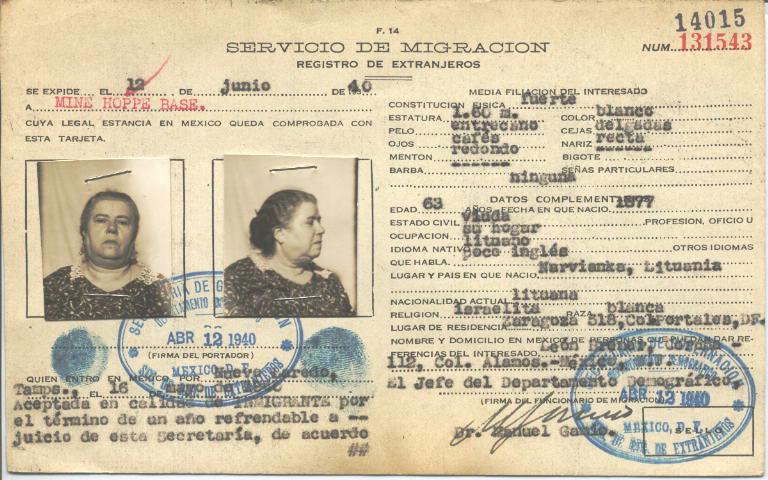 F. 14
SERVICIO DE MIGRACION
REGISTRO DE EXTRANJEROS
14015
NUM. 131543
SE EXPIDE EL 12 DE junio DE 40
A MINE HOPPE BASE.
CUYA LEGAL ESTANCIA EN MEXICO QUEDA COMPROBADA CON
ESTA TARJETA.
ABR 12 1940
(FIRMA DEL PORTADOR)
MEXICO
QUIEN ENTRO EN MEXICO POR Nuevo Laredo,
Tamps., EL 16 DE
Aceptada en calidad de INMIGRANTE por
el término de un año refrendable a --
juicio de esta Secretaría, de acuerdo
##
MEDIA FILIACION DEL INTERESADO
CONSTITUCION FISICA fuerte
ESTATURA 1.60 m. COLOR blanco
PELO entrecano CEJAS delgadas
OJOS cafés NARIZ recta
MENTON redondo BIGOTE ------
BARBA ------ SEÑAS PARTICULARES
ninguna
DATOS COMPLEMENT
EDAD 63 AÑOS. FECHA EN QUE NACIO. 1877
ESTADO CIVIL viuda PROFESION, OFICIO U
OCUPACION. su hogar
IDIOMA NATIVO lituano OTROS IDIOMAS
QUE HABLA. poco inglés
LUGAR Y PAIS EN QUE NACIO Narvianka, Lituania
NACIONALIDAD ACTUAL lituana
RELIGION. israelita RAZA blanca
LUGAR DE RESIDENCIA Zaragoza 518, Col Portales, DF.
NOMBRE Y DOMICILIO EN MEXICO DE PERSONAS QUE PUEDAN DAR RE-
FERENCIAS DEL INTERESADO. León
112, Col. Alamos.- México,
El Jefe del Departamento Demográfico,
(FIRMA DEL FUNCIONARIO DE MIGRACION)
ABR 12 1940
Dr. Manuel Gamio.
MEXICO, D. F.
SELLO
DE EXTRANJEROS